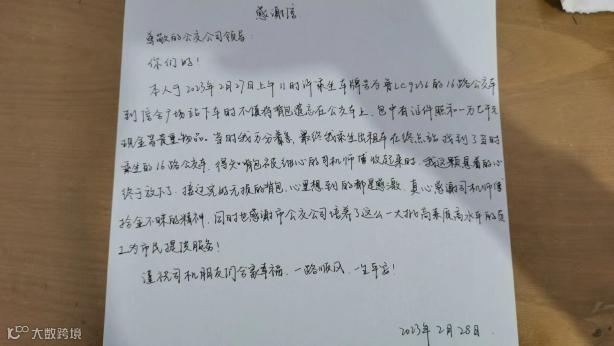 感谢信
尊敬的公交公司领导:
你们好!
本人于2023年2月27日上午11时许乘坐车牌号为鲁LC9236的16路公交车
到信合广场站下车时不慎将背包遗忘在公交车上,包中有证件照和一万七千元
现金等贵重物品。当时我万分着急,最终我乘坐出租车在终点站找到了当时
乘坐的16路公交车,得知背包被细心的司机师傅收起来时,我这颗悬着的心
终于放下了,接过完好无损的背包,心里想到的都是感激,真心感谢司机师傅
拾金不昧的精神,同时也感谢市公交公司培养了这么一大批高素质高水平的员
工为市民提供服务!
谨祝司机朋友们合家幸福,一路顺风,一生平安!
2023年2月28日.
大数跨境